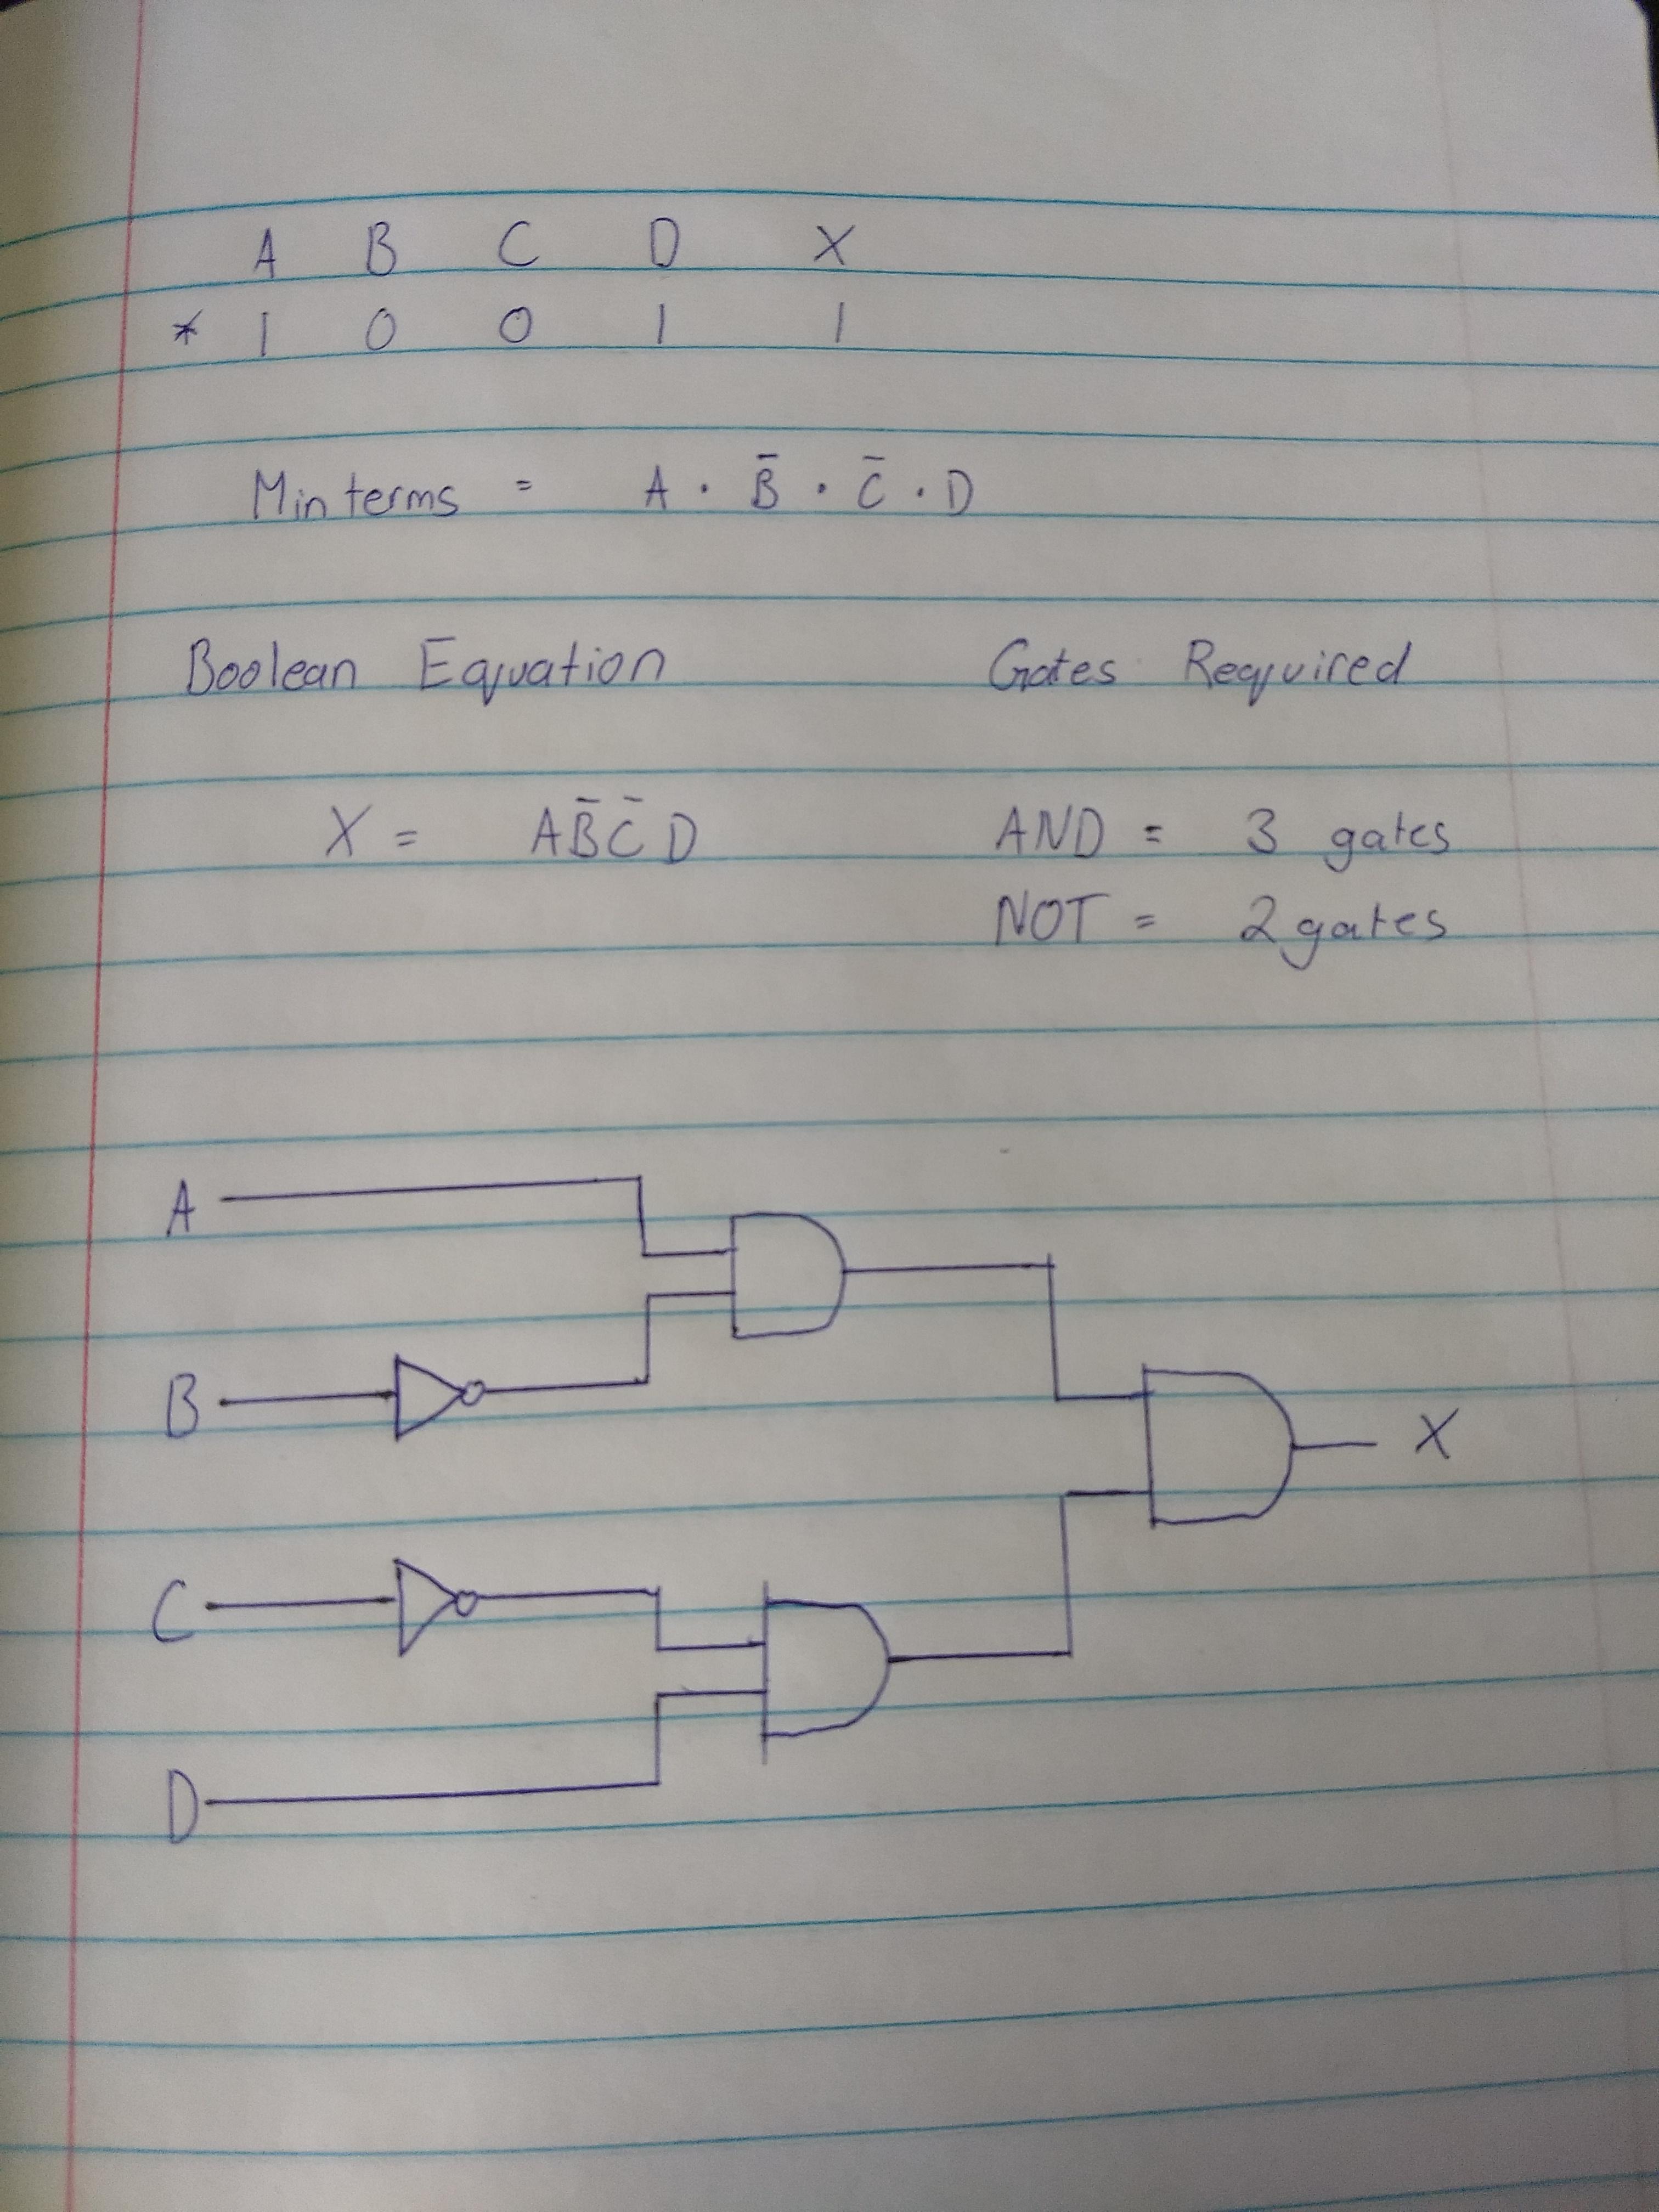 A B C D X
* 1 0 0 1 1
Min terms = A · B̄ · C̄ · D
Boolean Equation Gates Required
X = AB̄C̄D AND = 3 gates
NOT = 2 gates
A
B
X
C
D